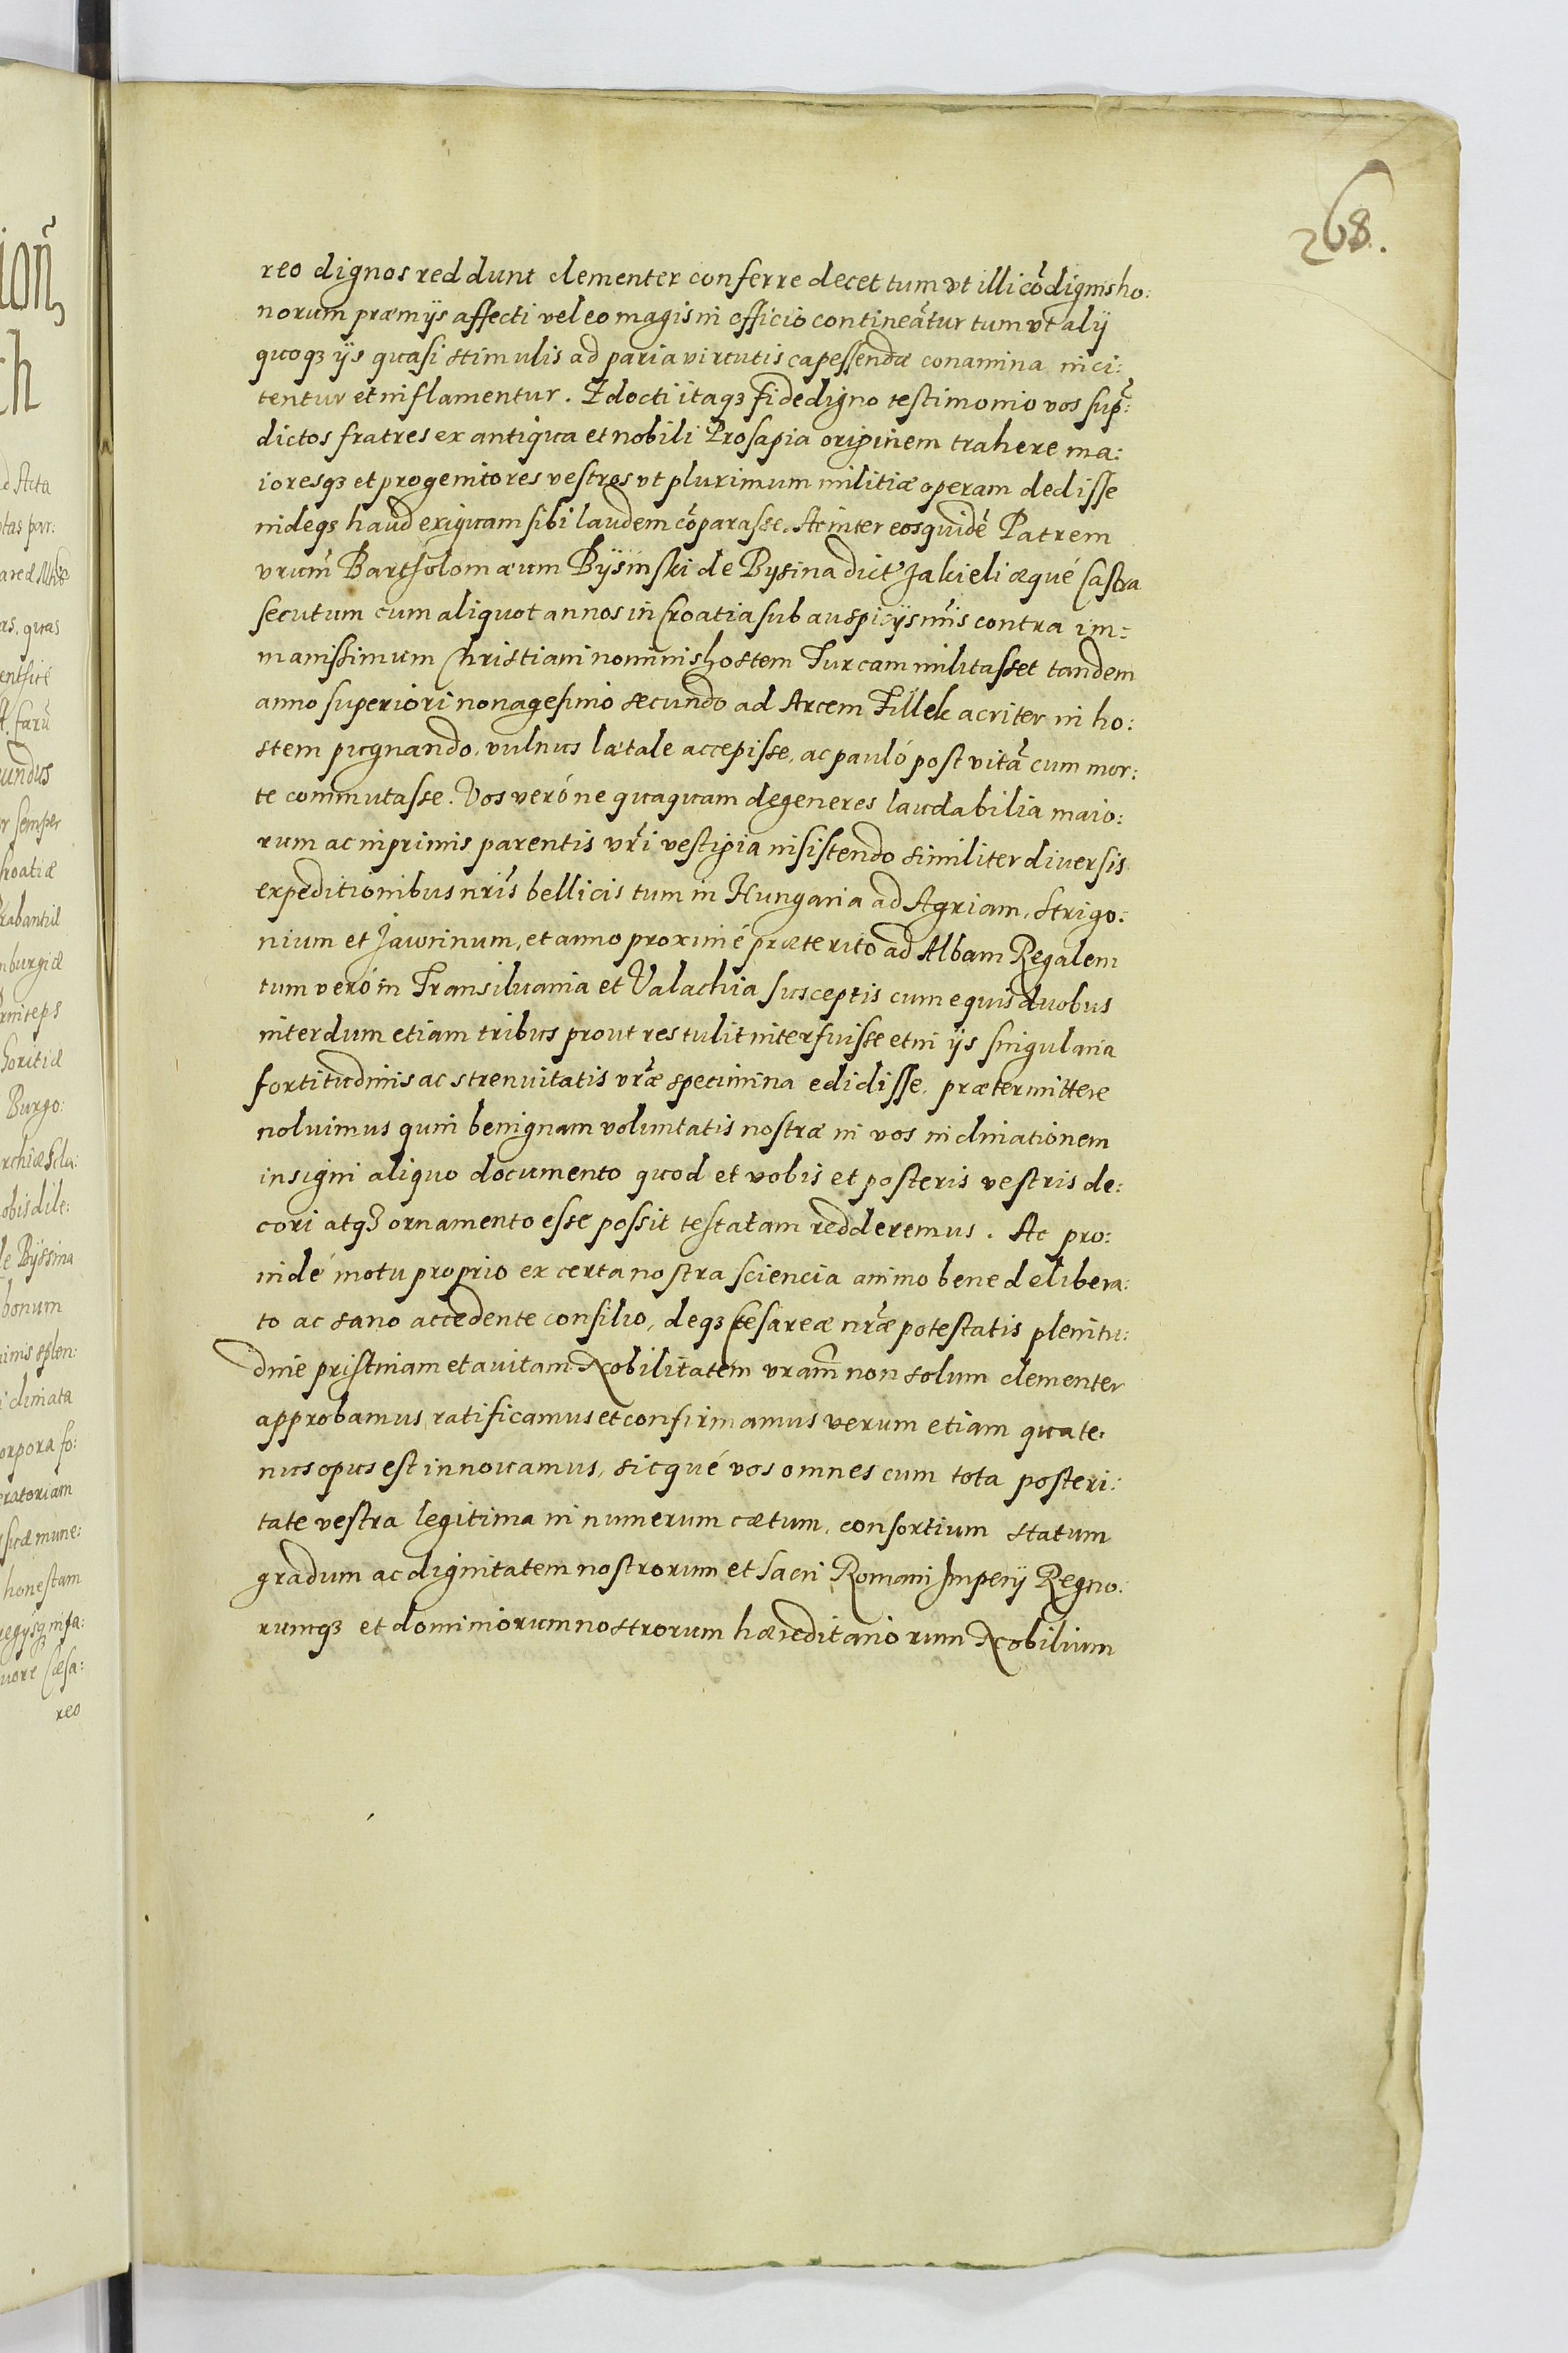 268.
reo dignos reddunt clementer conferre decet tum vt illi cōdignis ho:
norum præmijs affecti vel eo magis in officio contineātur tum vt alij
quoqꝫ ijs quasi stimulis ad paria virtutis capessendæ conamina inci:
tentur et inflamentur. Edocti itaqꝫ fide digno testimonio vos sup̄:
dictos fratres ex antiqua et nobili Prosapia originem trahere ma:
ioresqꝫ et progenitores vestros vt plurimum militiæ operam dedisse
indeqꝫ haud exiguam sibi laudem cōparasse. Ac inter eos quidē Patrem
vrum̄ Bartholomæum Bÿsinski de Bysina dict' Jakieli æqué Castra
secutum cum aliquot annos in Croatia sub auspicijs nr̄is contra im:
manissimum Christiani nominis hostem Turcam militasset tandem
anno superiori nonagesimo secundo ad Arcem Fillek acriter in ho:
stem pugnando, vulnus lætale accepisse, ac pauló post vitā cum mor:
te commutasse. Vos veró ne quaquam degeneres laudabilia maio:
rum ac inprimis parentis vr̄i vestigia insistendo similiter diversis
expeditionibus nr̄is bellicis tum in Hungaria ad Agriam, Strigo:
nium et Jaurinum, et anno proximé præterito ad Albam Regalem
tum veró in Transiluania et Valachia susceptis cum equis duobus
interdum etiam tribus prout res tulit interfuisse et in ijs singularia
fortitudinis ac strenuitatis vr̄æ specimina edidisse, prætermittere
noluimus quin benignam voluntatis nostræ in vos inclinationem
insigni aliquo documento quod et vobis et posteris vestris de:
cori atqꝫ ornamento esse possit testatam redderemus. Ac pro:
indé motu proprio ex certa nostra sciencia animo bene delibera:
to ac sano accedente consilio, deqꝫ Cesareæ nr̄æ potestatis plenitu:
dine pristinam et auitam Nobilitatem vram̄ non solum clementer
approbamus, ratificamus et confirmamus verum etiam quate:
nus opus est innouamus, sicqué vos omnes cum tota posteri:
tate vestra legitima in numerum cætum, consortium statum
gradum ac dignitatem nostrorum et Sacri Romani Imperij Regno:
rumqꝫ et dominiorum nostrorum hæreditariorum Nobilium